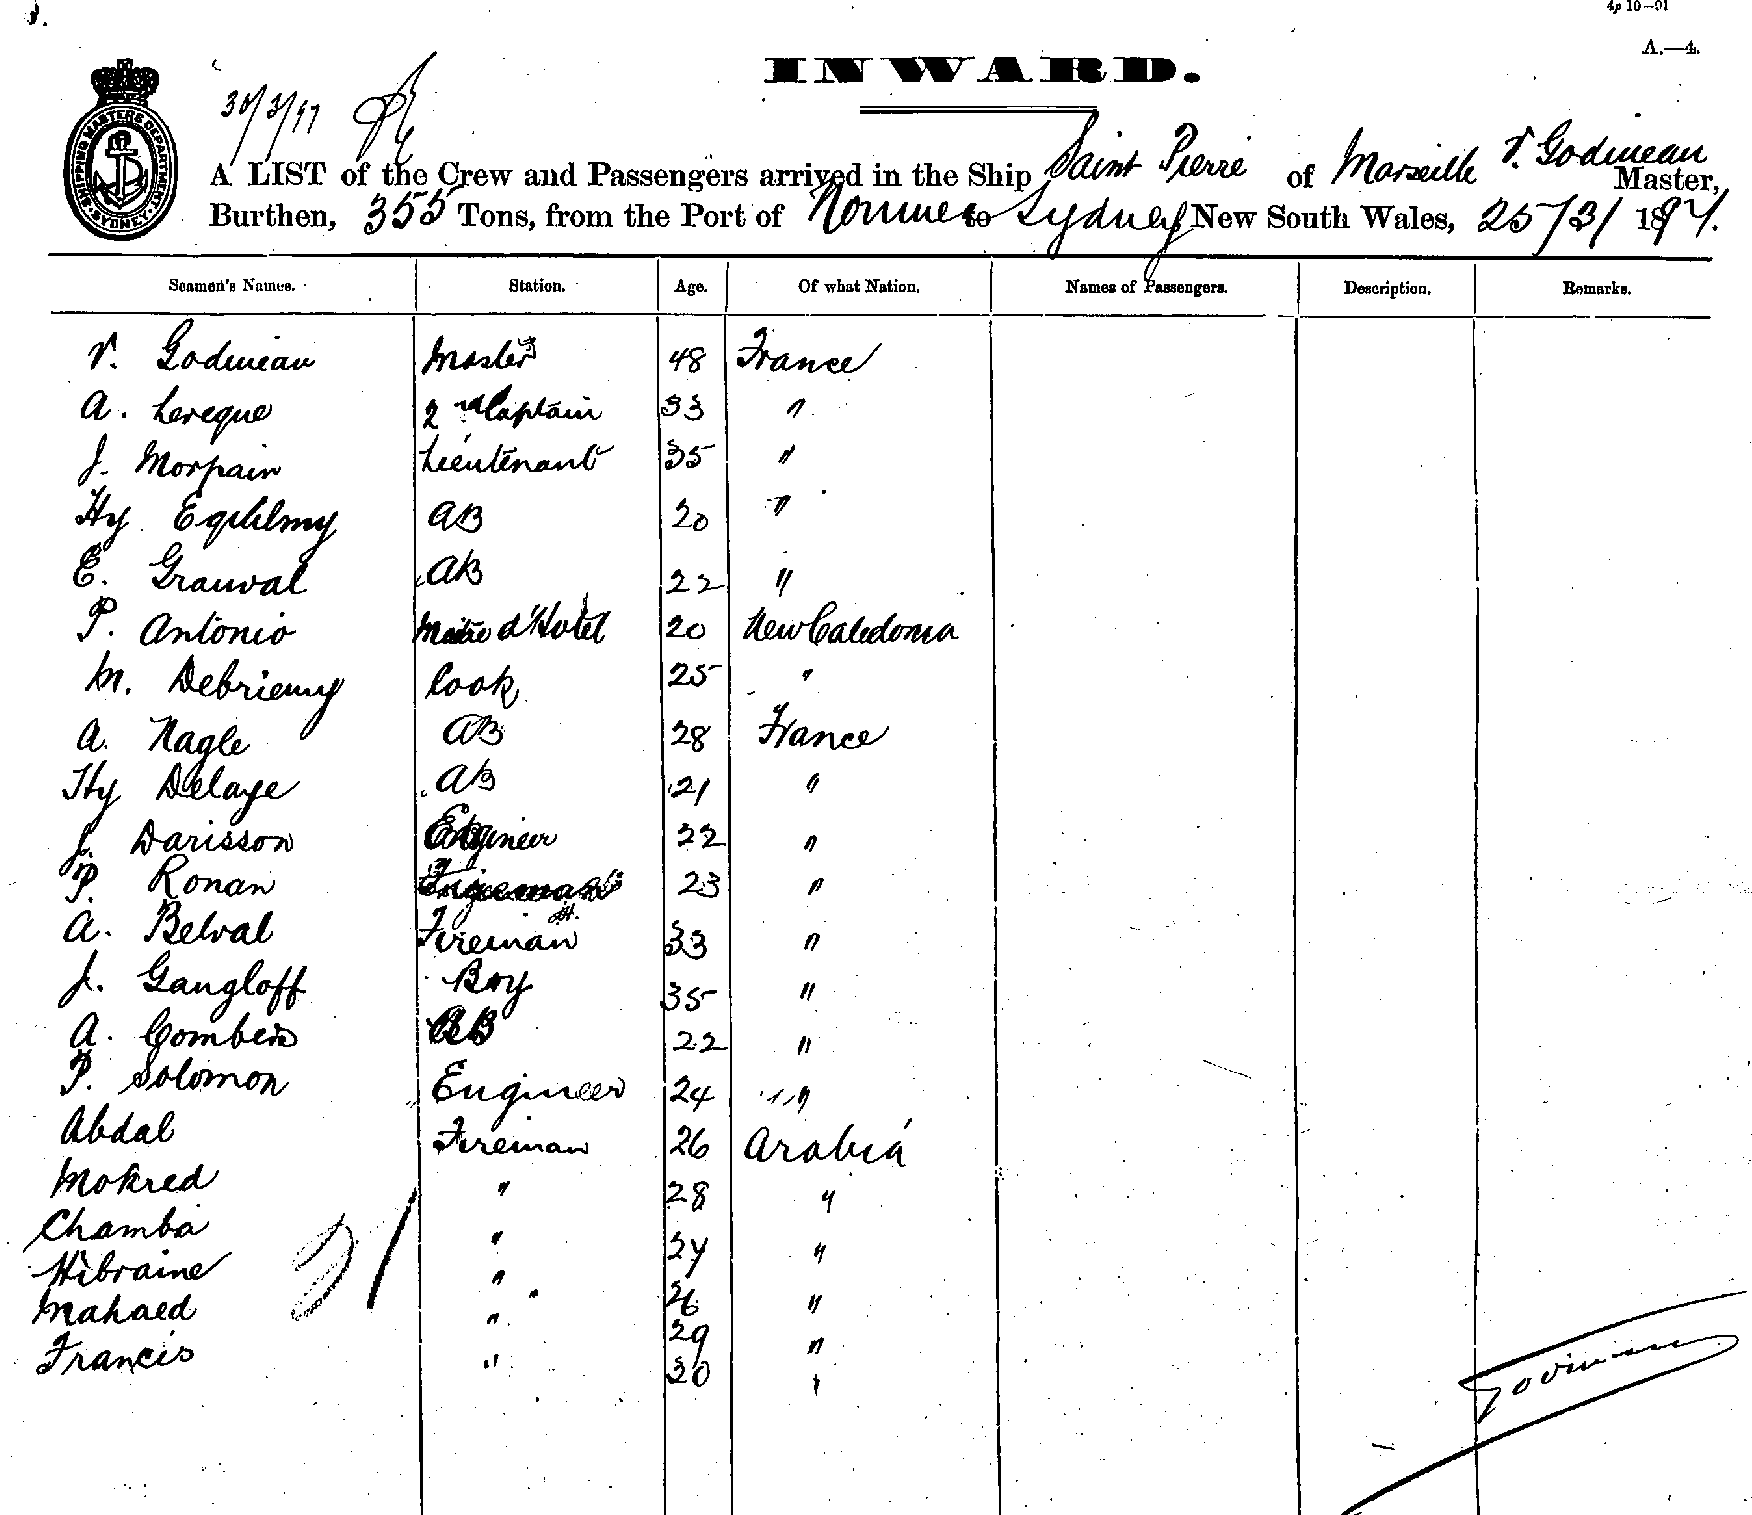 4p 10—91
A.—4.
INWARD.
SHIPPING MASTERS DEPARTMENT SYDNEY
A LIST of the Crew and Passengers arrived in the Ship Saint Pierre of Marseille V. Godineau Master,
Burthen, 355 Tons, from the Port of Noumea to Sydney New South Wales, 25/3/1897.
Seamen's Names. Station. Age. Of what Nation. Names of Passengers. Description. Remarks.
V. Godineau Master 48 France
A. Lereque 2nd Captain 33 "
J. Morpain Lieutenant 35 "
Hy AB 20 "
E. Grauval AB 22 "
P. Antonio Maitre d'Hotel 20 New Caledonia
M. Debriemy Cook 25 "
A. Nagle AB 28 France
Hy Delaye AB 21 "
J. Darisson Engineer 22 "
P. Ronan 23 "
A. Belval Fireman 33 "
J. Gangloff Boy 35 "
A. Combes AB 22 "
P. Solomon Engineer 24 "
Abdal Fireman 26 Arabia
Mokred " 28 "
Chamba " 24 "
Hibraine " 26 "
Mahaed " 29 "
Francis " 30 "
21
Godineau